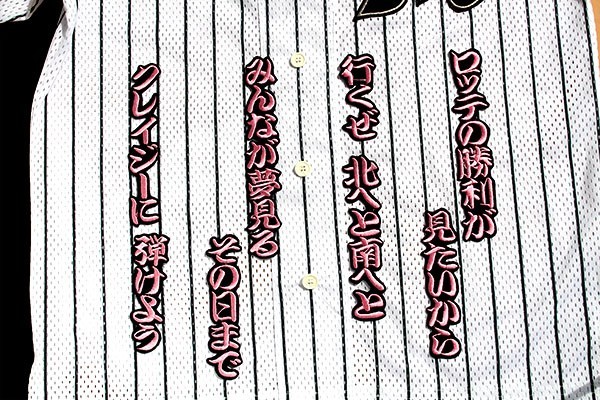 ロッテの勝利が
見たいから
行くぜ 北へと南へと
みんなが夢見る
その日まで
クレイジーに 弾けよう